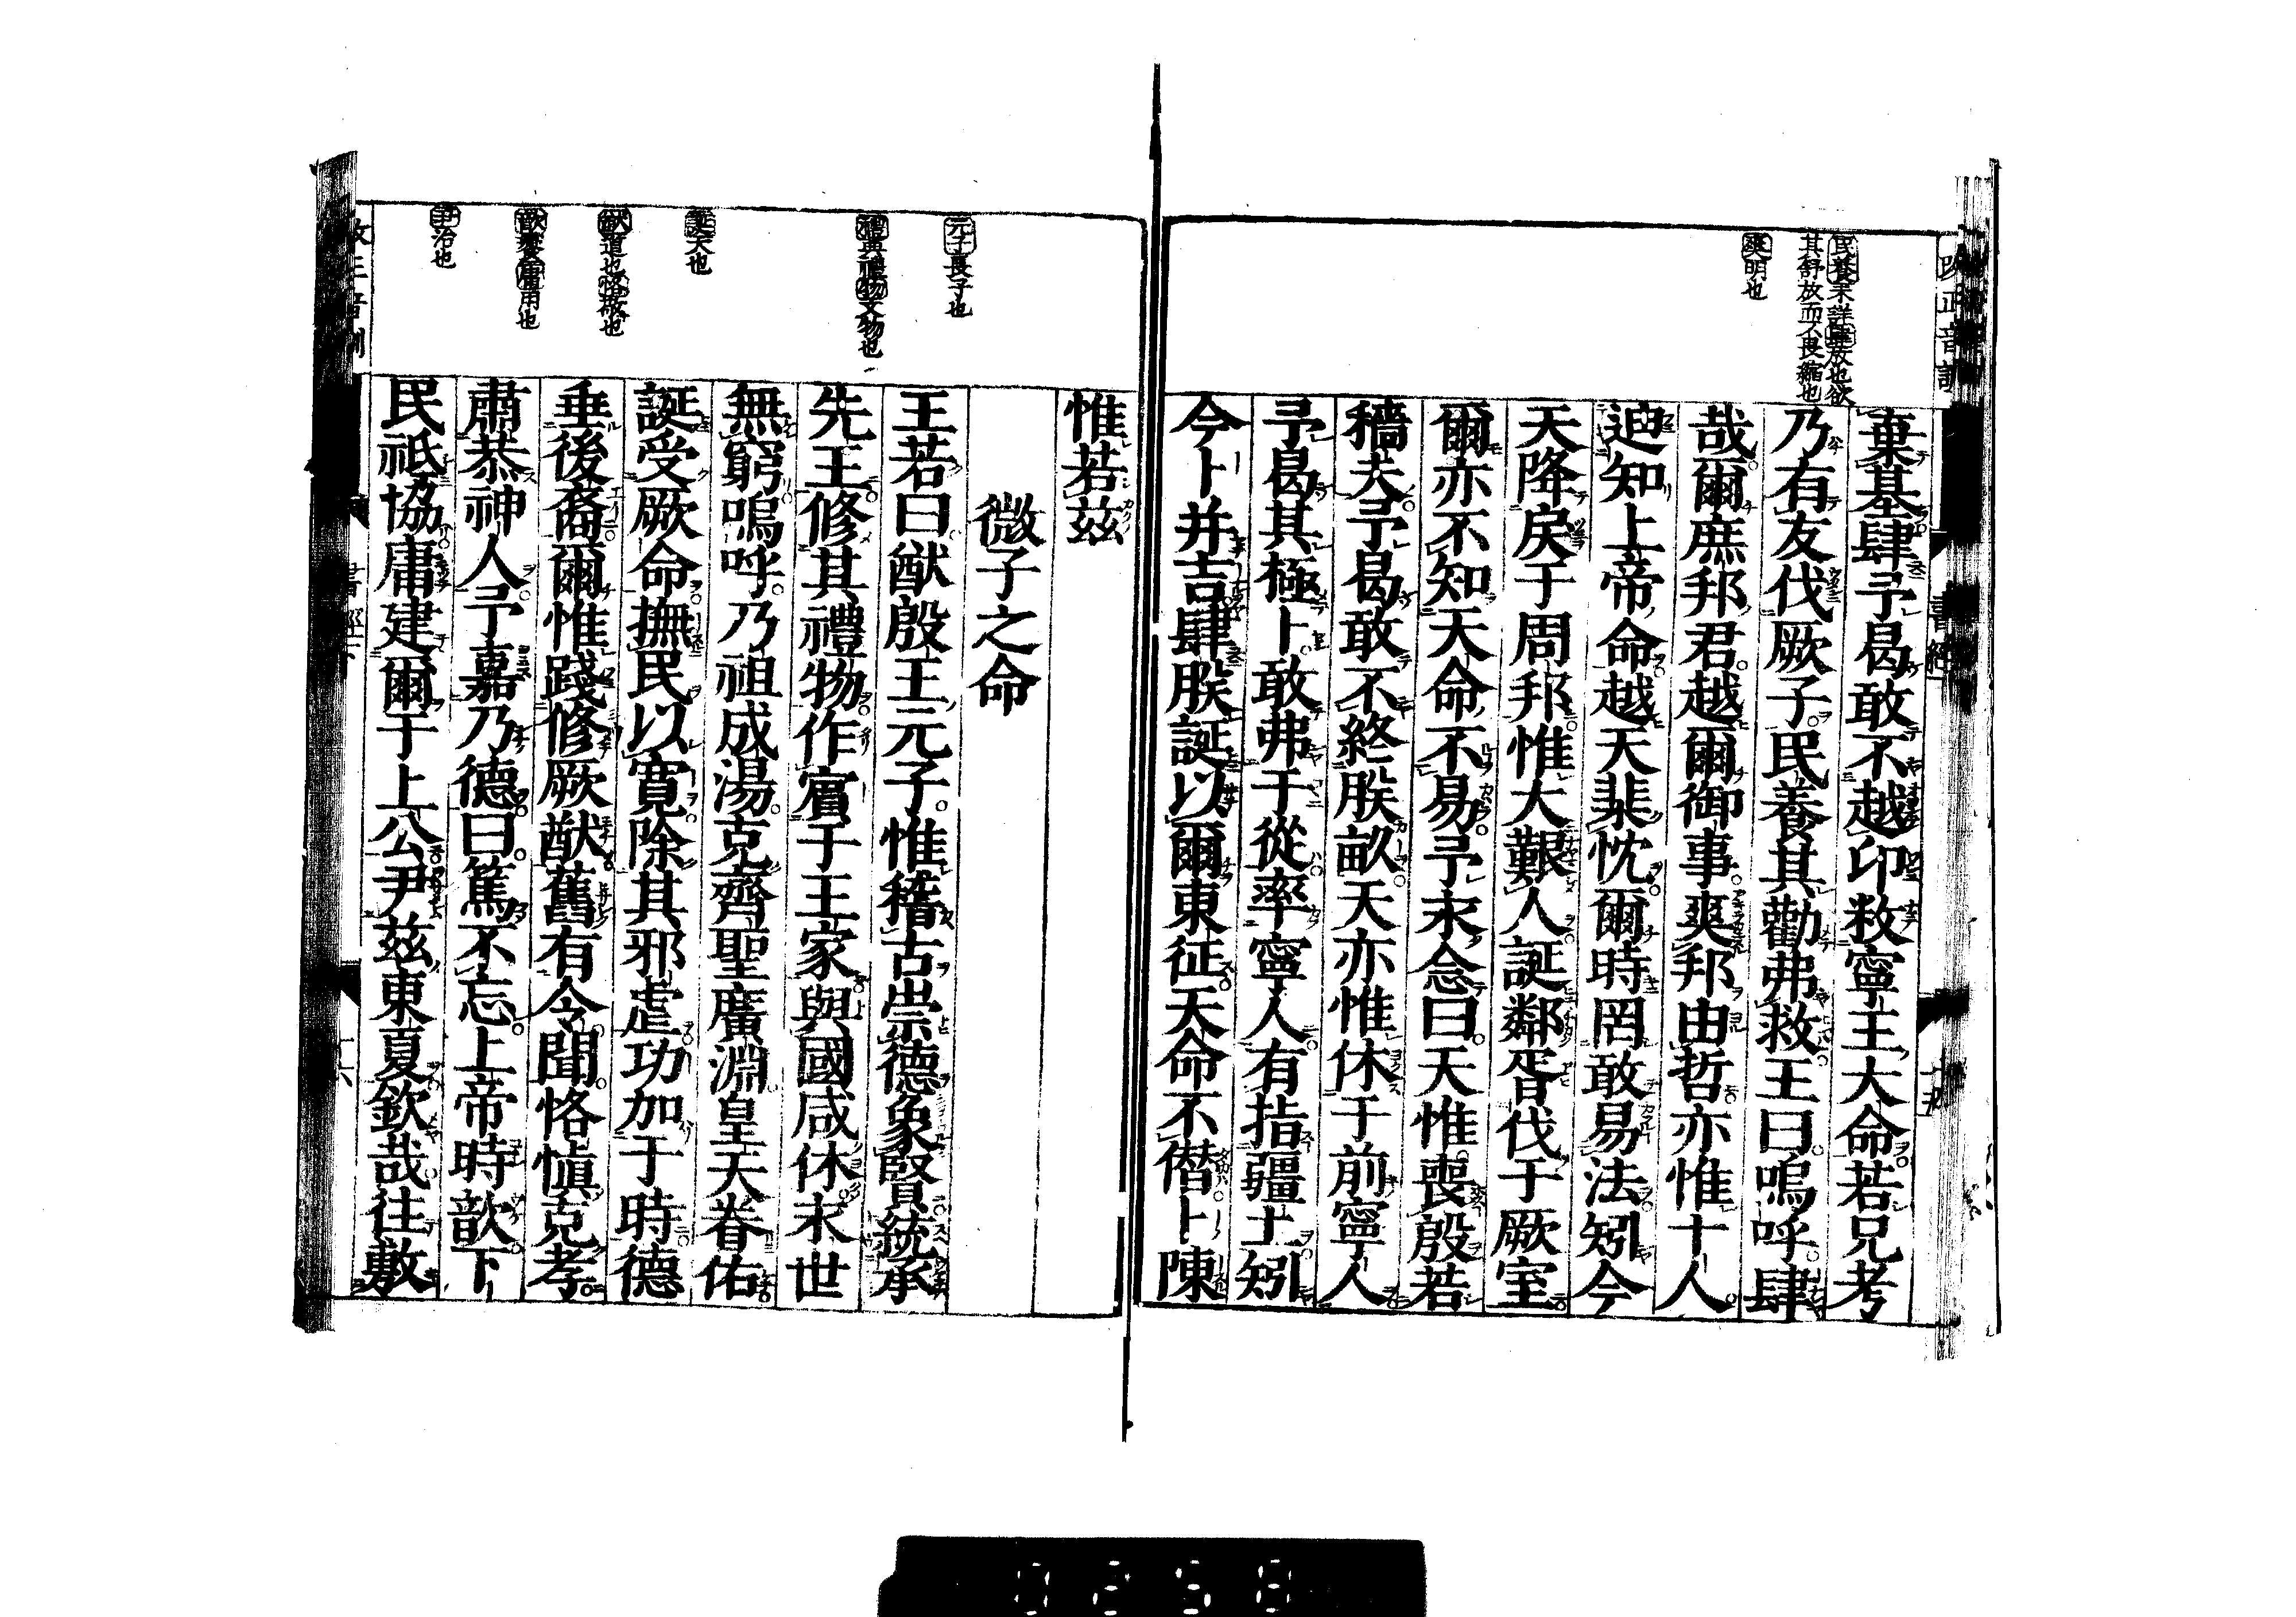 民養未詳肆放也欲
其舒放而不畏縮也
爽明也
棄基肆予曷敢不越卬敉寧王大命若兄考
乃有友伐厥子民養其勸弗救王曰嗚呼肆
哉爾庶邦君越爾御事爽邦由哲亦惟十人
迪知上帝命越天棐忱爾時罔敢易法矧今
天降戾于周邦惟大艱人誕鄰胥伐于厥室
爾亦不知天命不易予永念曰天惟喪殷若
穡夫予曷敢不終朕畝天亦惟休于前寧人
予曷其極卜敢弗于從率寧人有指疆土矧
今卜并吉肆朕誕以爾東征天命不僭卜陳
元子長子也
禮典禮物文物也
誕大也
猷道也恪敬也
歆饗庸用也
尹治也
惟若茲
微子之命
王若曰猷殷王元子惟稽古崇德象賢統承
先王修其禮物作賓于王家與國咸休永世
無窮嗚呼乃祖成湯克齊聖廣淵皇天眷佑
誕受厥命撫民以寬除其邪虐功加于時德
垂後裔爾惟踐修厥猷舊有令聞恪慎克孝
肅恭神人予嘉乃德曰篤不忘上帝時歆下
民祗協庸建爾于上公尹茲東夏欽哉往敷
0258